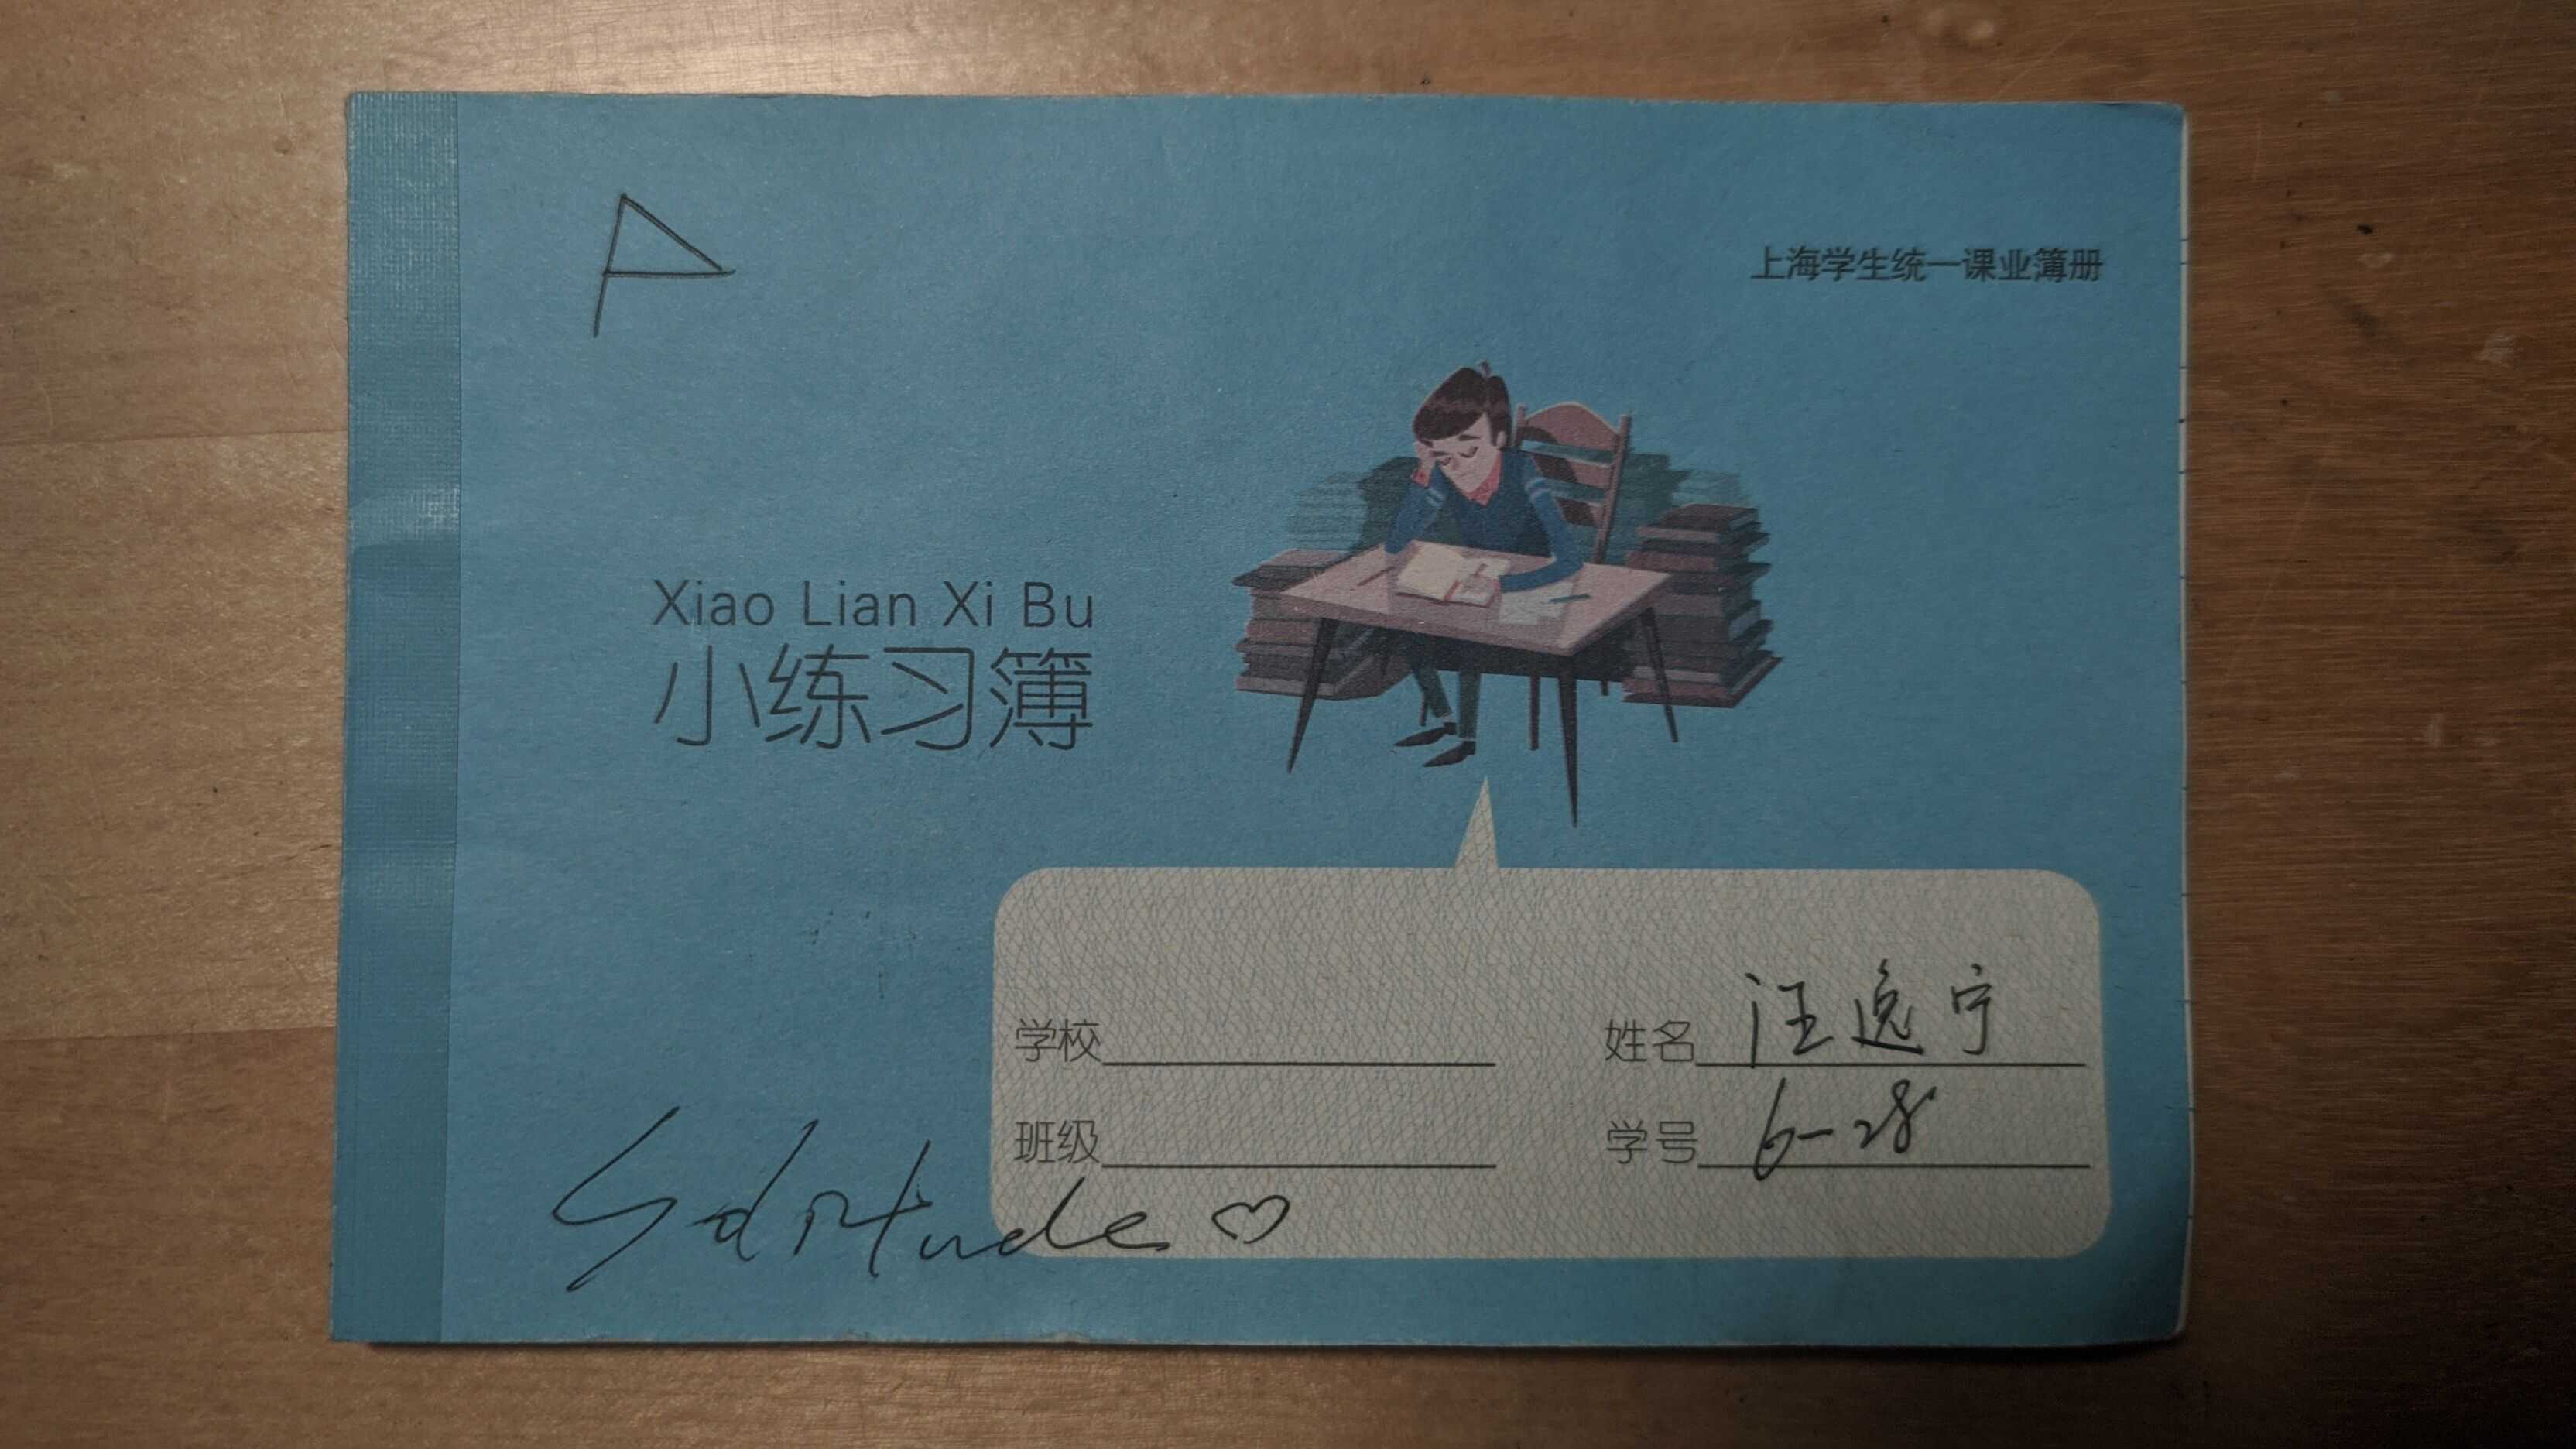 上海学生统一课业簿册
Xiao Lian Xi Bu
小练习簿
学校 姓名 汪逸宁
班级 学号 6-28
Solitude ♡